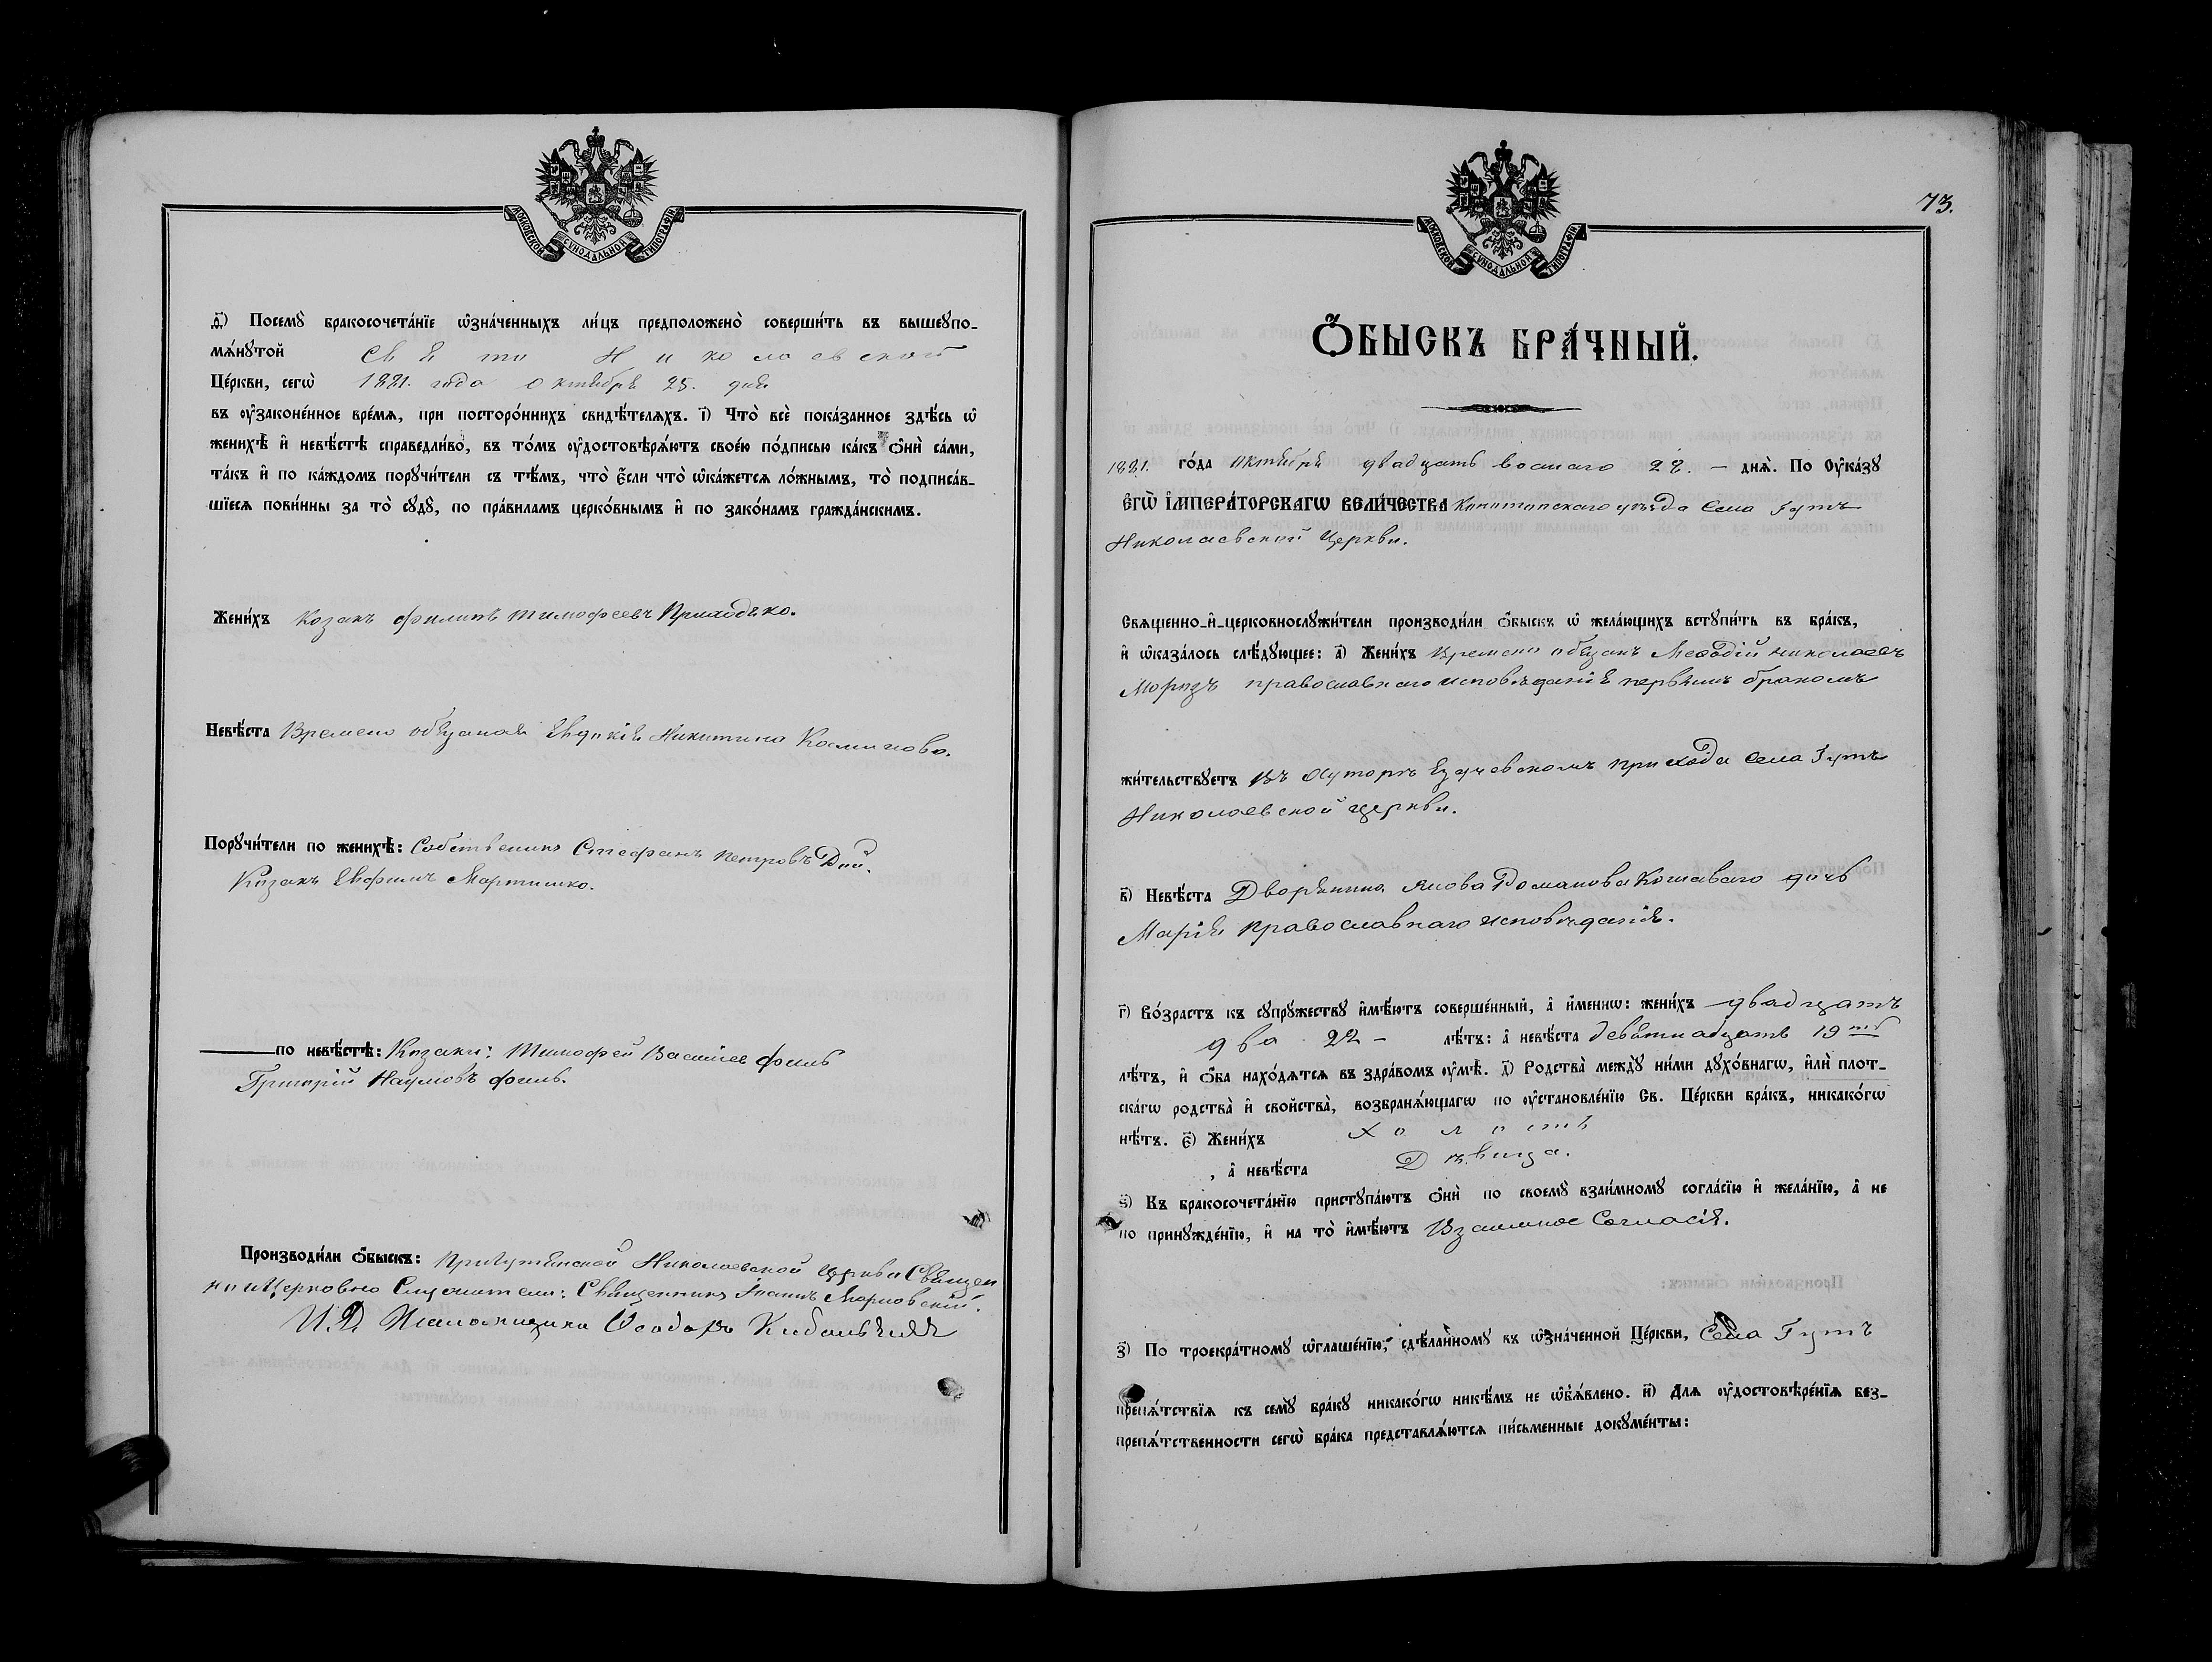 МОСКОВСКОЙ СѴНОДАЛЬНОЙ ТИПОГРАФІИ
ѳ҃) Посемꙋ̀ бракосочета́нїе ѡ҆зна́ченныхъ ли́цъ предположено̀ соверши́ть въ вышеꙋпо-
мѧ́нꙋтой Свято Николаевской
Це́ркви, сегѡ̀ 1881. года октября 25. дня
въ оу҆законе́нное вре́мѧ, при посторо́ннихъ свидѣ́телѧхъ. і҃) Что̀ всѐ пока́занное здѣ́сь ѡ҆
женихѣ̀ и҆ невѣ́стѣ справедли́во, въ то́мъ оу҆достовѣрѧ́ютъ свое́ю по́дписью ка́къ ѻ҆нѝ са́ми,
та́къ и҆ по ка́ждомъ порꙋчи́тели съ тѣ́мъ, что̀ є҆́сли что̀ ѡ҆ка́жетсѧ ло́жнымъ, то̀ подписа́в-
шїесѧ пови́нны за то̀ сꙋдꙋ̀, по пра́виламъ церко́внымъ и҆ по зако́намъ гражда́нскимъ.
Жени́хъ Козакъ Филипъ Тимофеевъ Приходько.
Невѣ́ста Временно обязаная Евдокія Никитина
Порꙋчи́тели по женихѣ̀: Собственикъ Стефанъ Петровъ Дій.
Козакъ Евфимъ Мартишко.
по невѣ́стѣ: Козаки: Тимофей Васи́лев Филь
Григорій Наумовъ Филь.
Производи́ли ѻ҆́быскъ: Николаевской церкви Священ
но и Церковно Служители: Священникъ Іоанъ Марковскій.
И. Д. Псаломщика Ѳеодоръ
73.
МОСКОВСКОЙ СѴНОДАЛЬНОЙ ТИПОГРАФІИ
Ѻ҆́БЫСКЪ БРА́ЧНЫЙ.
1881. го́да Октября двадцать восмаго 28. – днѧ̀. По Оу҆ка́зꙋ
Є҆ГѠ̀ І҆МПЕРА́ТОРСКАГѠ ВЕЛИ́ЧЕСТВА Конотопскаго уѣзда Села Гутъ
Николаевской Церкви.
Свѧще́нно-и҆-церковнослꙋжи́тели производи́ли ѻ҆́быскъ ѡ҆ жела́ющихъ встꙋпи́ть въ бра́къ,
и҆ ѡ҆каза́лось слѣ́дꙋющее: а҃) Жени́хъ Временно обязан Меѳодій Николаевъ
Морозъ православнаго исповѣданія первымъ бракомъ
жи́тельствꙋетъ въ Хуторѣ прихода села Гутъ
Николаевской церкви.
в҃) Невѣ́ста Дворянина Якова Романова Кошаваго дочь
Марія православнаго исповѣданія.
г҃) Во́зрастъ къ сꙋпрꙋ́жествꙋ и҆мѣ́ютъ соверше́нный, а҆ и҆́меннѡ: жени́хъ двадцать
два 22 – лѣ́тъ: а҆ невѣ́ста девятнадцать 19ть
лѣ́тъ, и҆ ѻ҆́ба нахо́дѧтсѧ въ здра́вомъ оу҆мѣ̀. д҃) Родства̀ междꙋ̀ ни́ми дꙋхо́внагѡ, и҆лѝ плот-
ска́гѡ родства̀ и҆ сво́йства, возбранѧ́ющагѡ по оу҆становле́нїю Св. Це́ркви бра́къ, никако́гѡ
нѣ́тъ. є҃) Жени́хъ холостъ
, а҆ невѣ́ста Дѣвица.
ѕ҃) Къ бракосочета́нїю пристꙋпа́ютъ ѻ҆нѝ по своемꙋ̀ взаи́мномꙋ согла́сїю и҆ жела́нїю, а҆ не
по принꙋжде́нїю, и҆ на то̀ и҆мѣ́ютъ Взаимное Согласія.
з҃) По троекра́тномꙋ ѡ҆глаше́нїю, сдѣ́ланномꙋ въ ѡ҆зна́ченной Це́ркви, Села Гутъ
препѧ́тствїѧ къ семꙋ̀ бра́кꙋ никако́гѡ никѣ́мъ не ѡ҆б̾ѧ́влено. и҃) Длѧ оу҆достовѣре́нїѧ без-
препѧ́тственности сегѡ̀ бра́ка представлѧ́ютсѧ пи́сьменные докꙋме́нты: